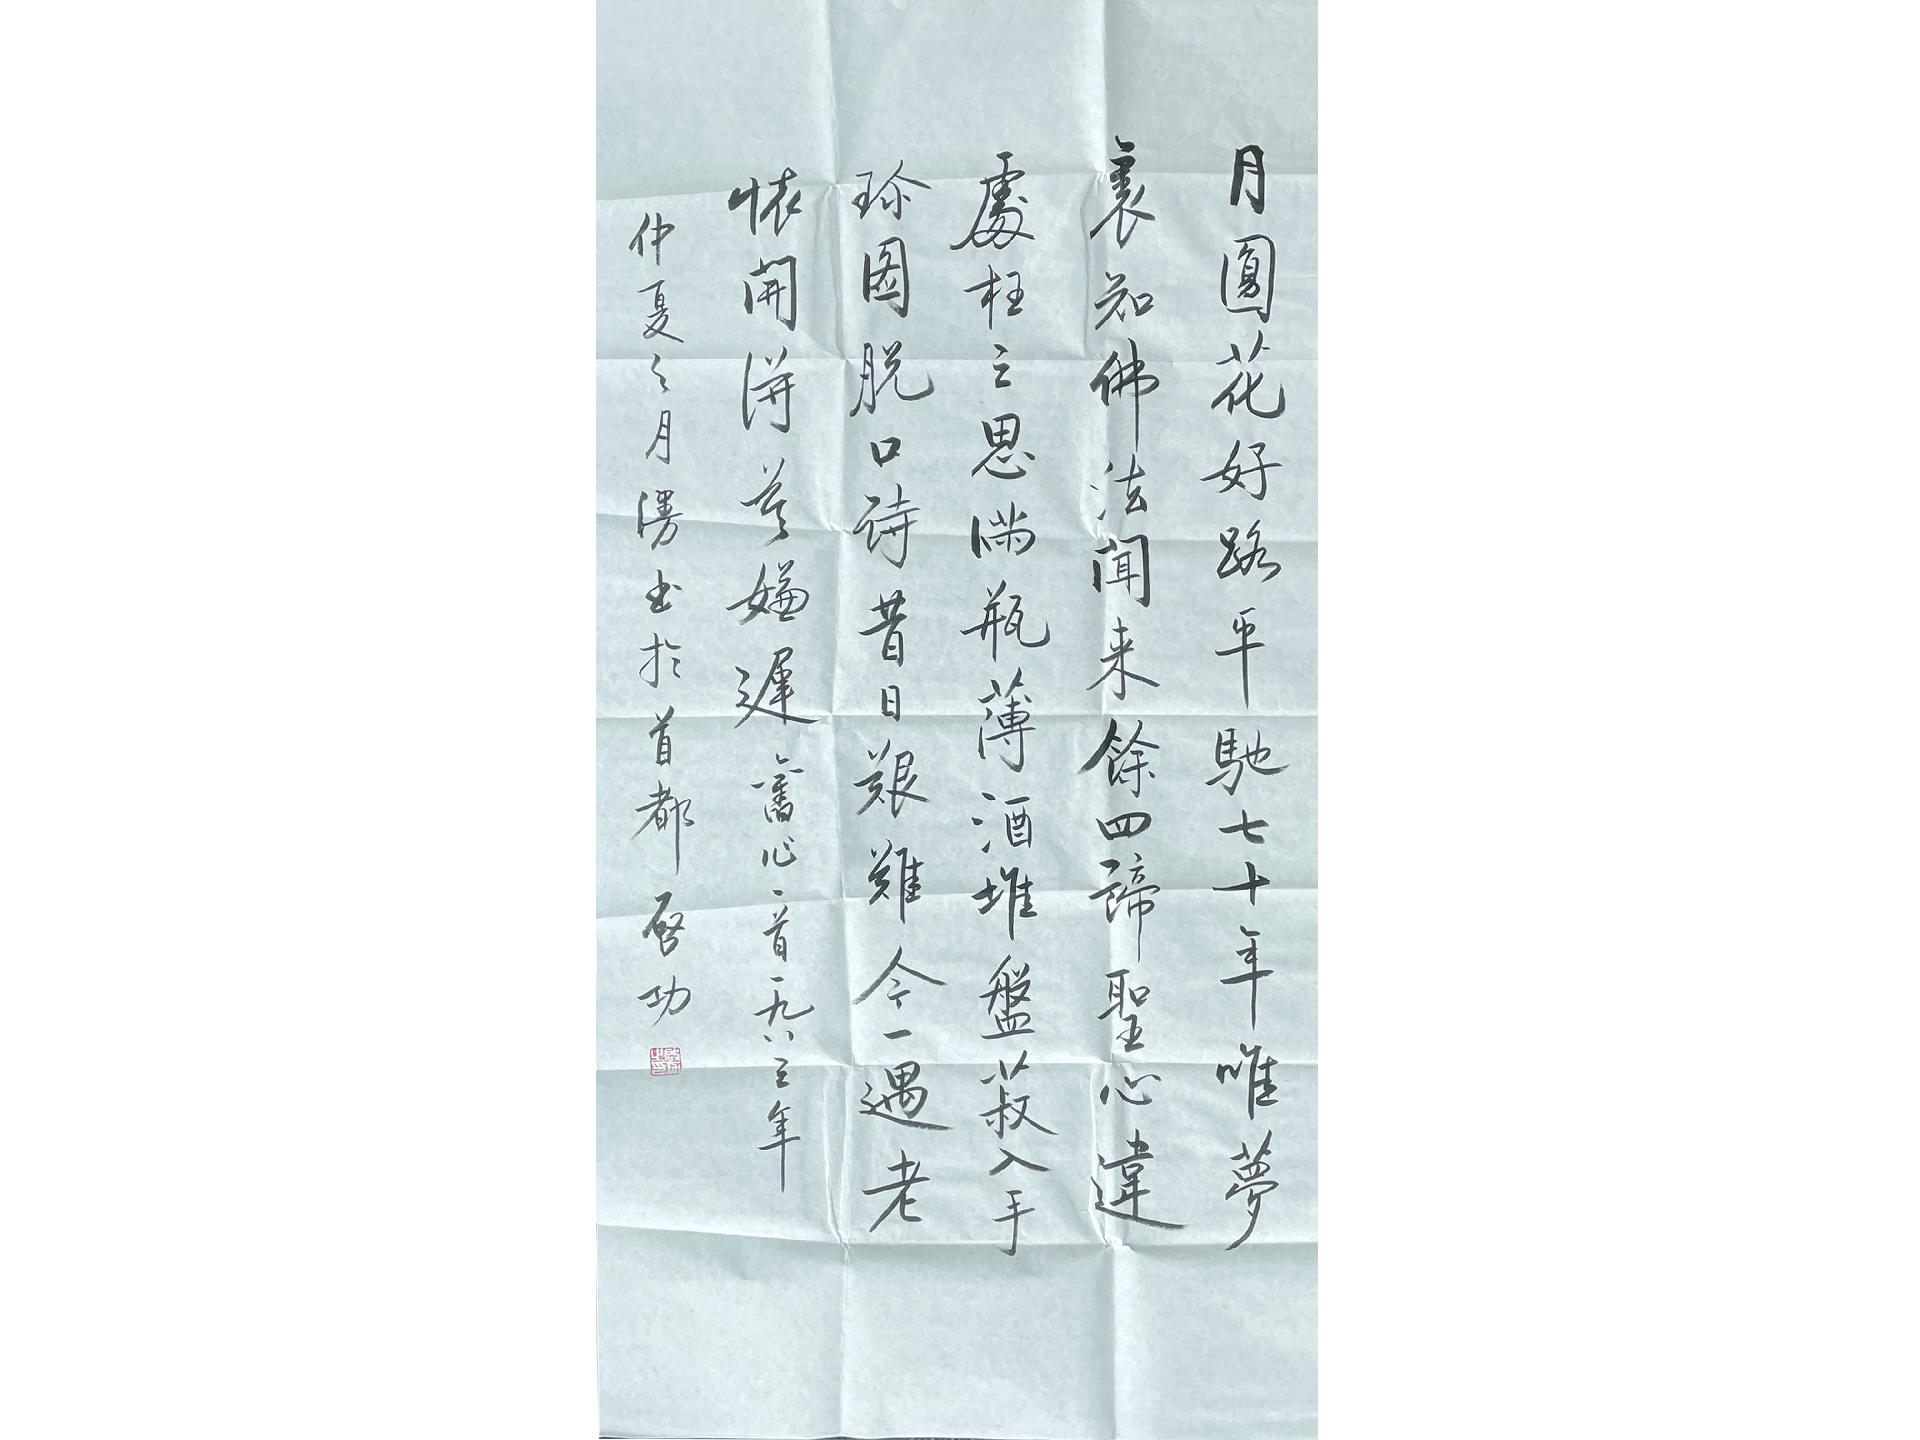 月圓花好路平馳七十年唯夢
裏知佛法闻来餘四諦聖心違
處枉三思满瓶薄酒堆盤菽入手
珎图脱口詩昔日艱難今一遇老
懷開得莫嫌遲 舊作一首一九八三年
仲夏之月漫书於首都 啓功